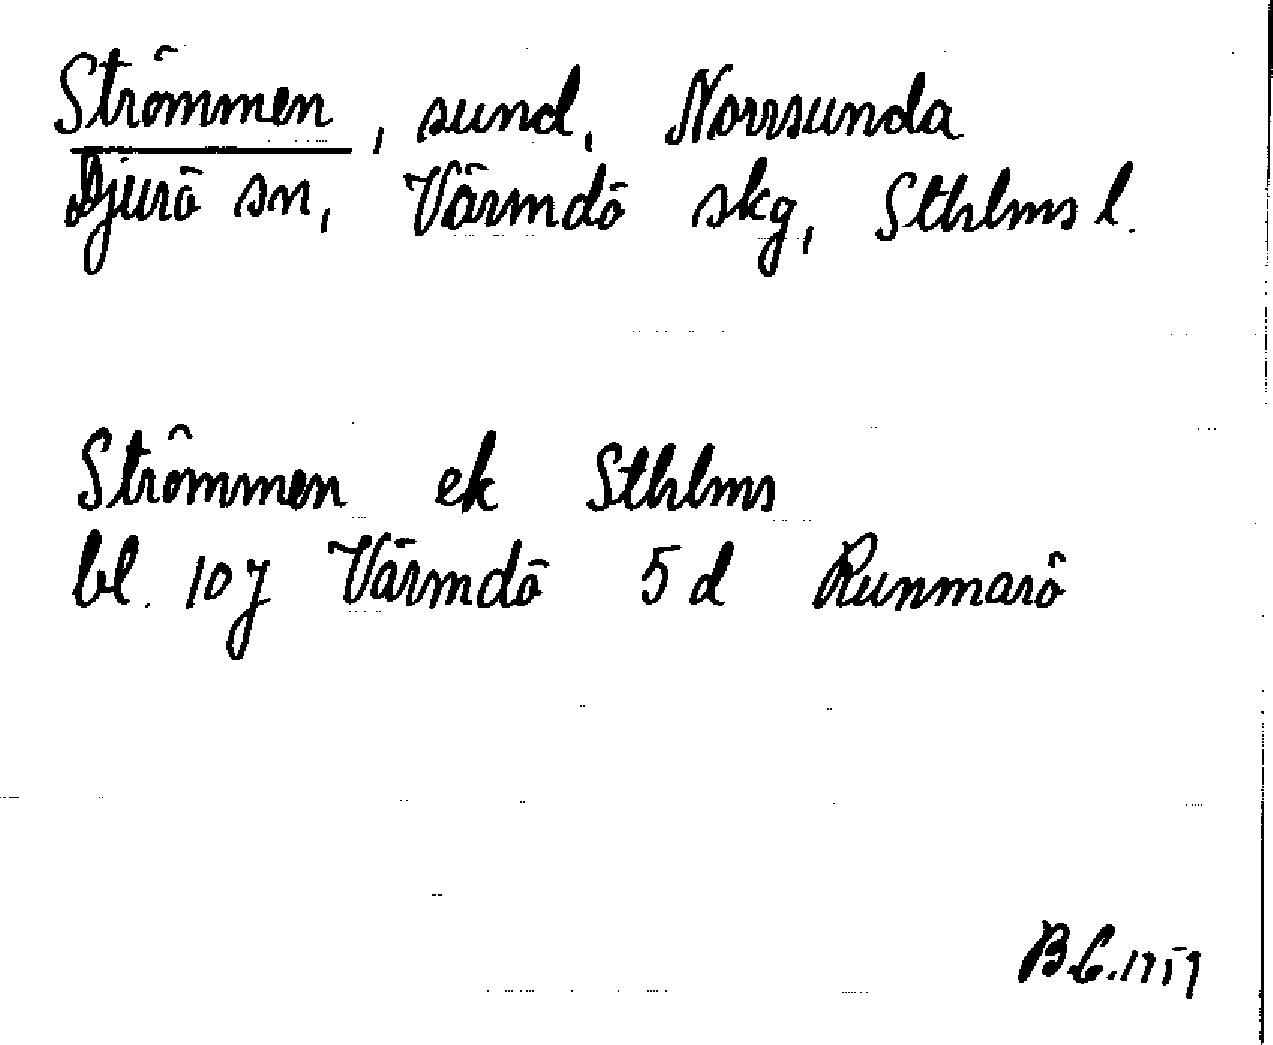 Strömmen, sund, Norrsunda
Djurö sn, Värmdö skg, Sthlms l.
Strömmen ek Sthlms
bl. 107 Värmdö 5 d Runmarö
B.C. 1959